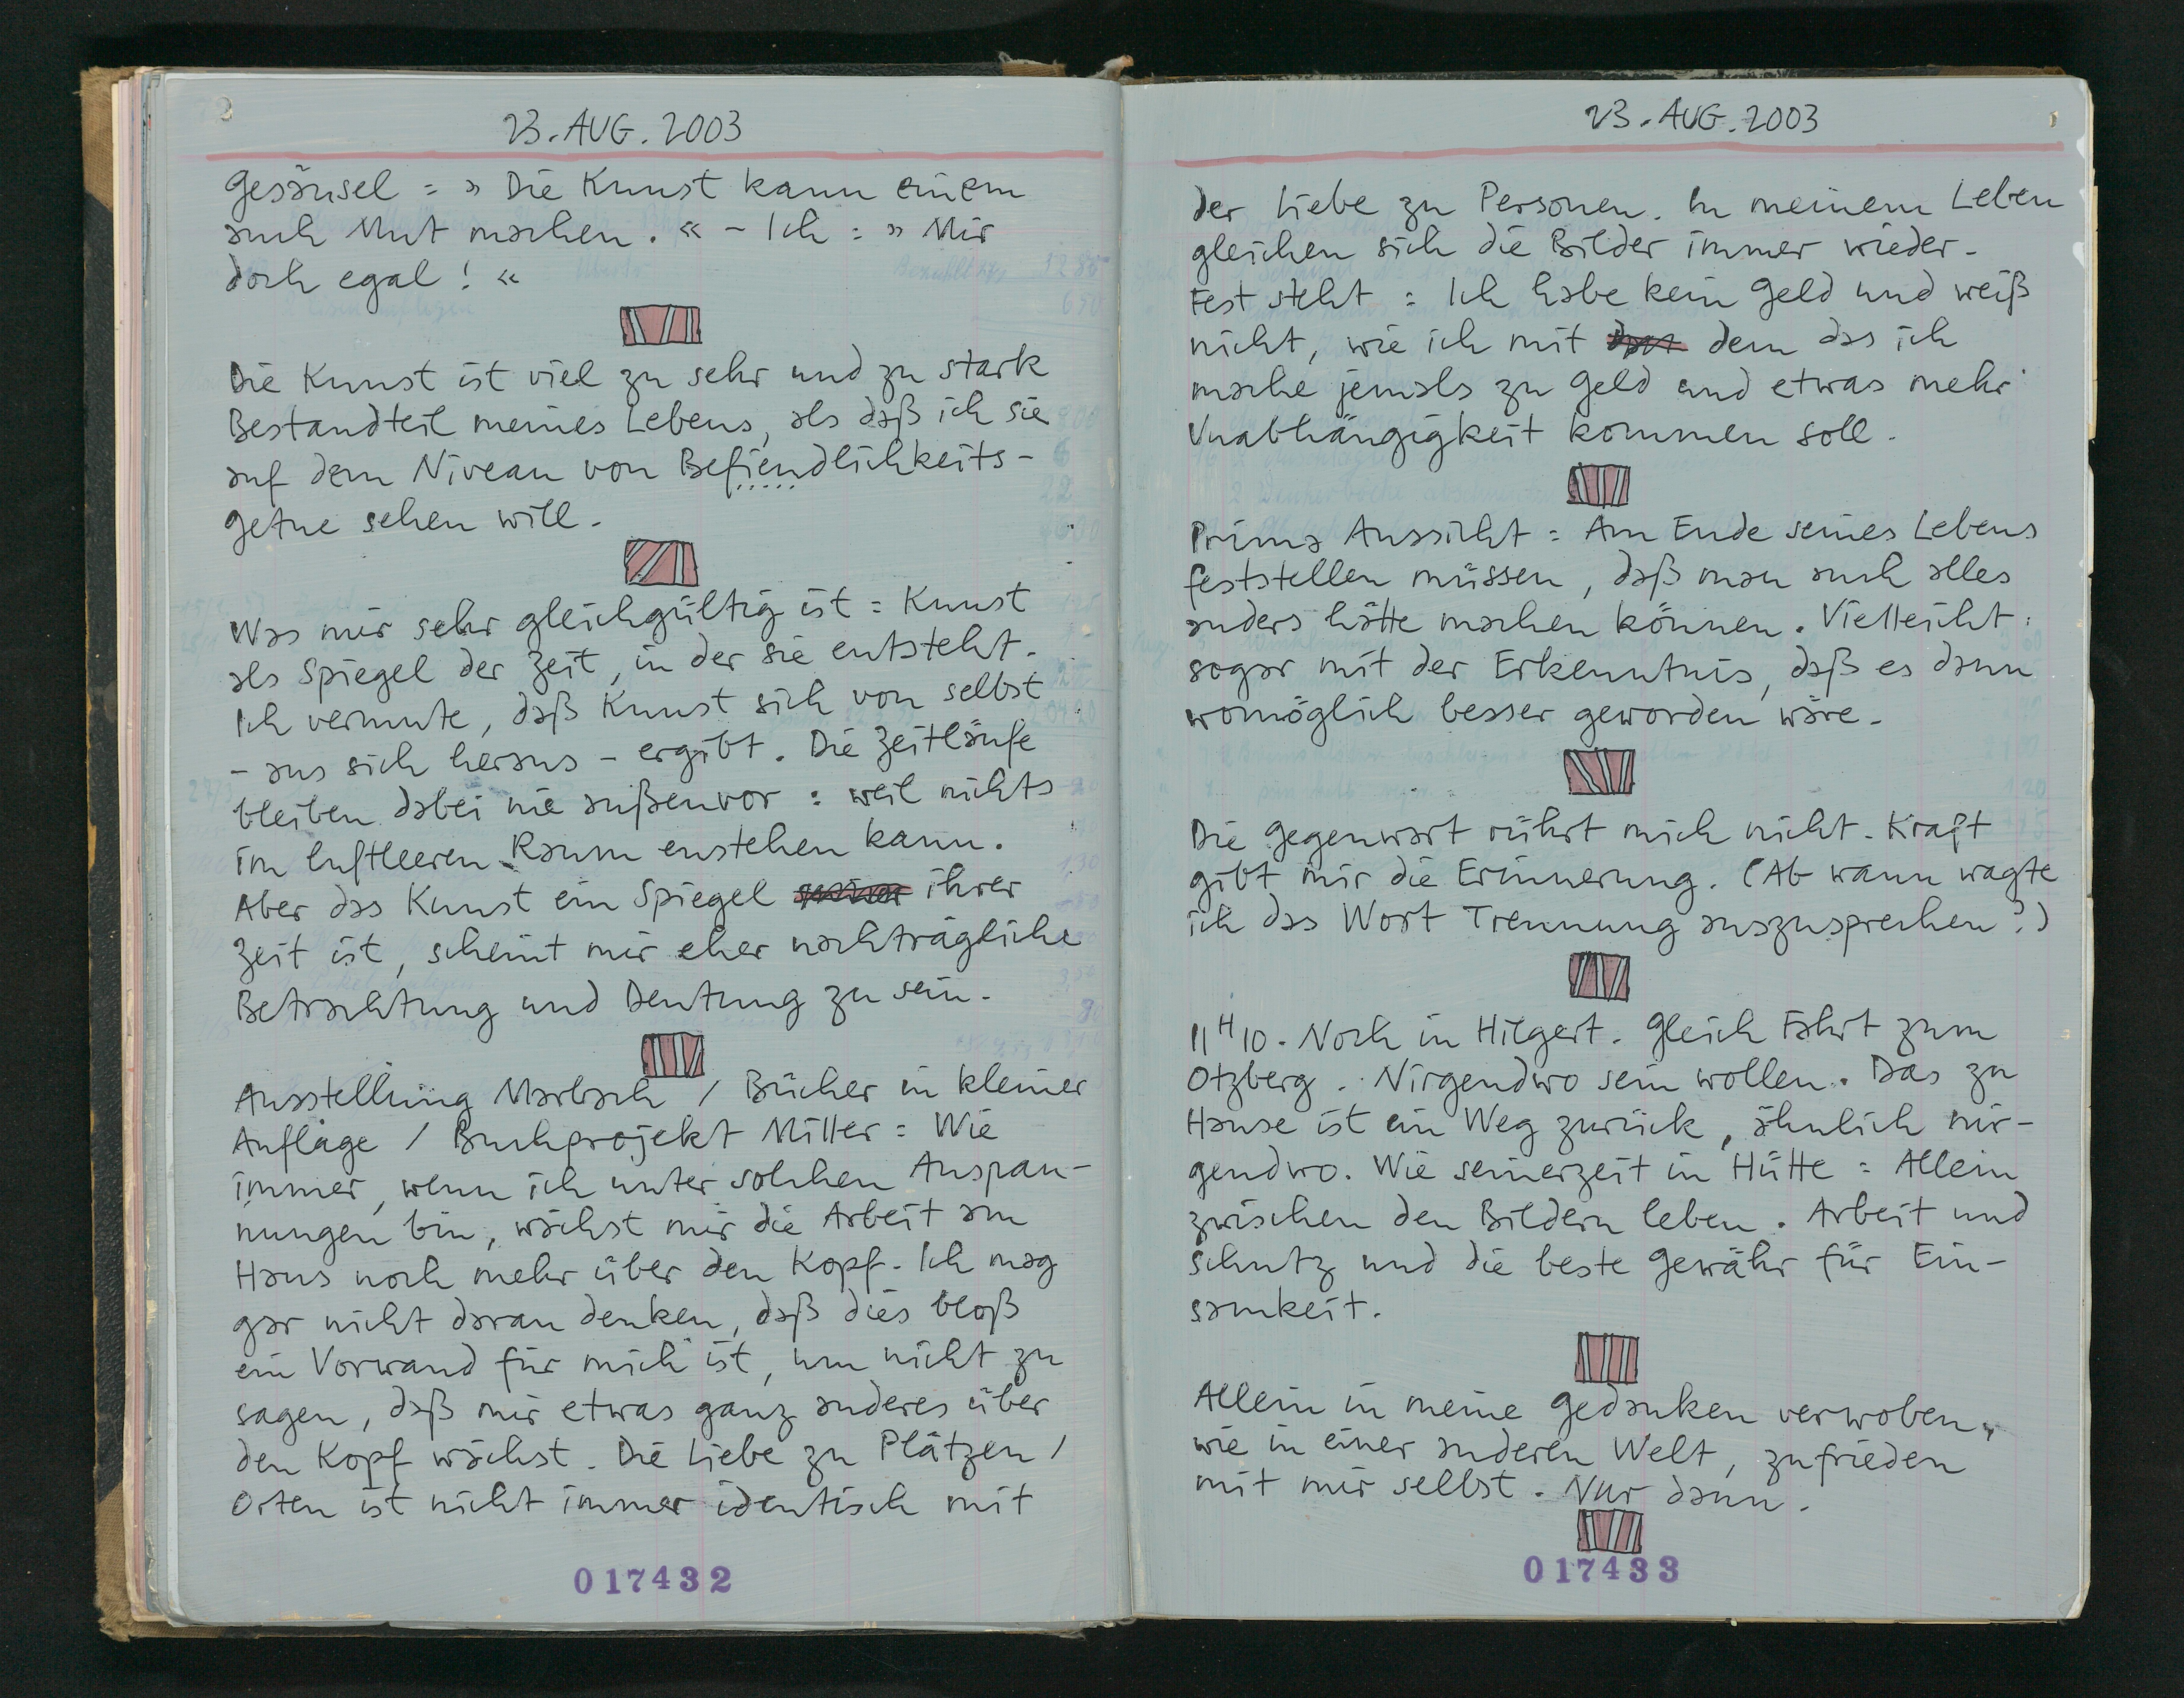 23. AUG. 2003
Gesäusel : » Die Kunst kann einem
auch Mut machen. « – Ich : » Mir
doch egal ! «
Die Kunst ist viel zu sehr und zu stark
Bestandteil meines Lebens, als daß ich sie
auf dem Niveau von Befiendlichkeits-
getue sehen will.
Was mir sehr gleichgültig ist : Kunst
als Spiegel der Zeit, in der sie entsteht.
Ich vermute, daß Kunst sich von selbst
– aus sich heraus – ergibt. Die Zeitläufe
bleiben dabei nie außenvor : weil nichts
im luftleeren Raum enstehen kann.
Aber das Kunst ein Spiegel ihrer
Zeit ist, scheint mir eher nachträgliche
Betrachtung und Deutung zu sein.
Ausstellung Marbach / Bücher in kleiner
Auflage / Buchprojekt Miller : Wie
immer, wenn ich unter solchen Anspan-
nungen bin, wächst mir die Arbeit am
Haus noch mehr über den Kopf. Ich mag
gar nicht daran denken, daß dies bloß
ein Vorwand für mich ist, um nicht zu
sagen, daß mir etwas ganz anderes über
den Kopf wächst. Die Liebe zu Plätzen /
Orten ist nicht immer identisch mit
017432
23. AUG. 2003
der Liebe zu Personen. In meinem Leben
gleichen sich die Bilder immer wieder.
Fest steht : Ich habe kein Geld und weiß
nicht, wie ich mit dem das ich
mache jemals zu Geld und etwas mehr
Unabhängigkeit kommen soll.
Prima Aussicht : Am Ende seines Lebens
feststellen müssen, daß man auch alles
anders hätte machen können. Vielleicht
sogar mit der Erkenntnis, daß es dann
womöglich besser geworden wäre.
Die Gegenwart rührt mich nicht. Kraft
gibt mir die Erinnerung. (Ab wann wagte
ich das Wort Trennung auszusprechen?)
11 H 10. Noch in Hilgert. Gleich Fahrt zum
Otzberg. Nirgendwo sein wollen. Das zu
Hause ist ein Weg zurück, ähnlich nir-
gendwo. Wie seinerzeit in Hütte : Allein
zwischen den Bildern leben. Arbeit und
Schutz und die beste Gewähr für Ein-
samkeit.
Allein in meine Gedanken verwoben,
wie in einer anderen Welt, zufrieden
mit mir selbst. Nur dann.
017433